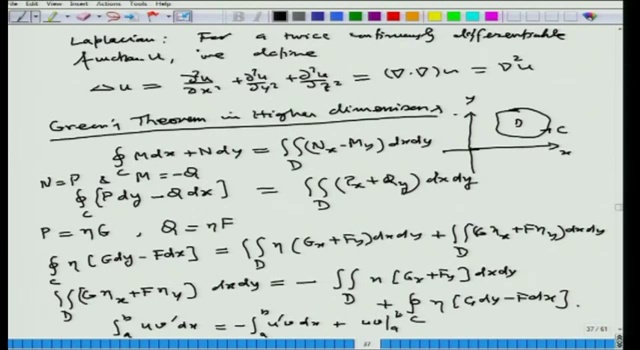 File Edit View Insert Actions Tools Help
Laplacian: For a twice continuously differentiable
function u, we define
△u = ∂²u/∂x² + ∂²u/∂y² + ∂²u/∂z² = (∇·∇)u = ∇²u
Green's Theorem in Higher dimensions
y
D
C
x
∮_C Mdx + Ndy = ∬_D (N_x - M_y) dxdy
N = P & M = -Q
∮_C [Pdy - Qdx] = ∬_D (P_x + Q_y) dxdy
P = ηG , Q = ηF
∮_C η[Gdy - Fdx] = ∬_D η(G_x + F_y) dxdy + ∬_D (Gη_x + Fη_y) dxdy
∬_D (Gη_x + Fη_y) dxdy = - ∬_D η[G_x + F_y] dxdy
+ ∮_C η[Gdy - Fdx].
∫_a^b uv'dx = -∫_a^b u'v dx + uv|_a^b
37 / 61
37